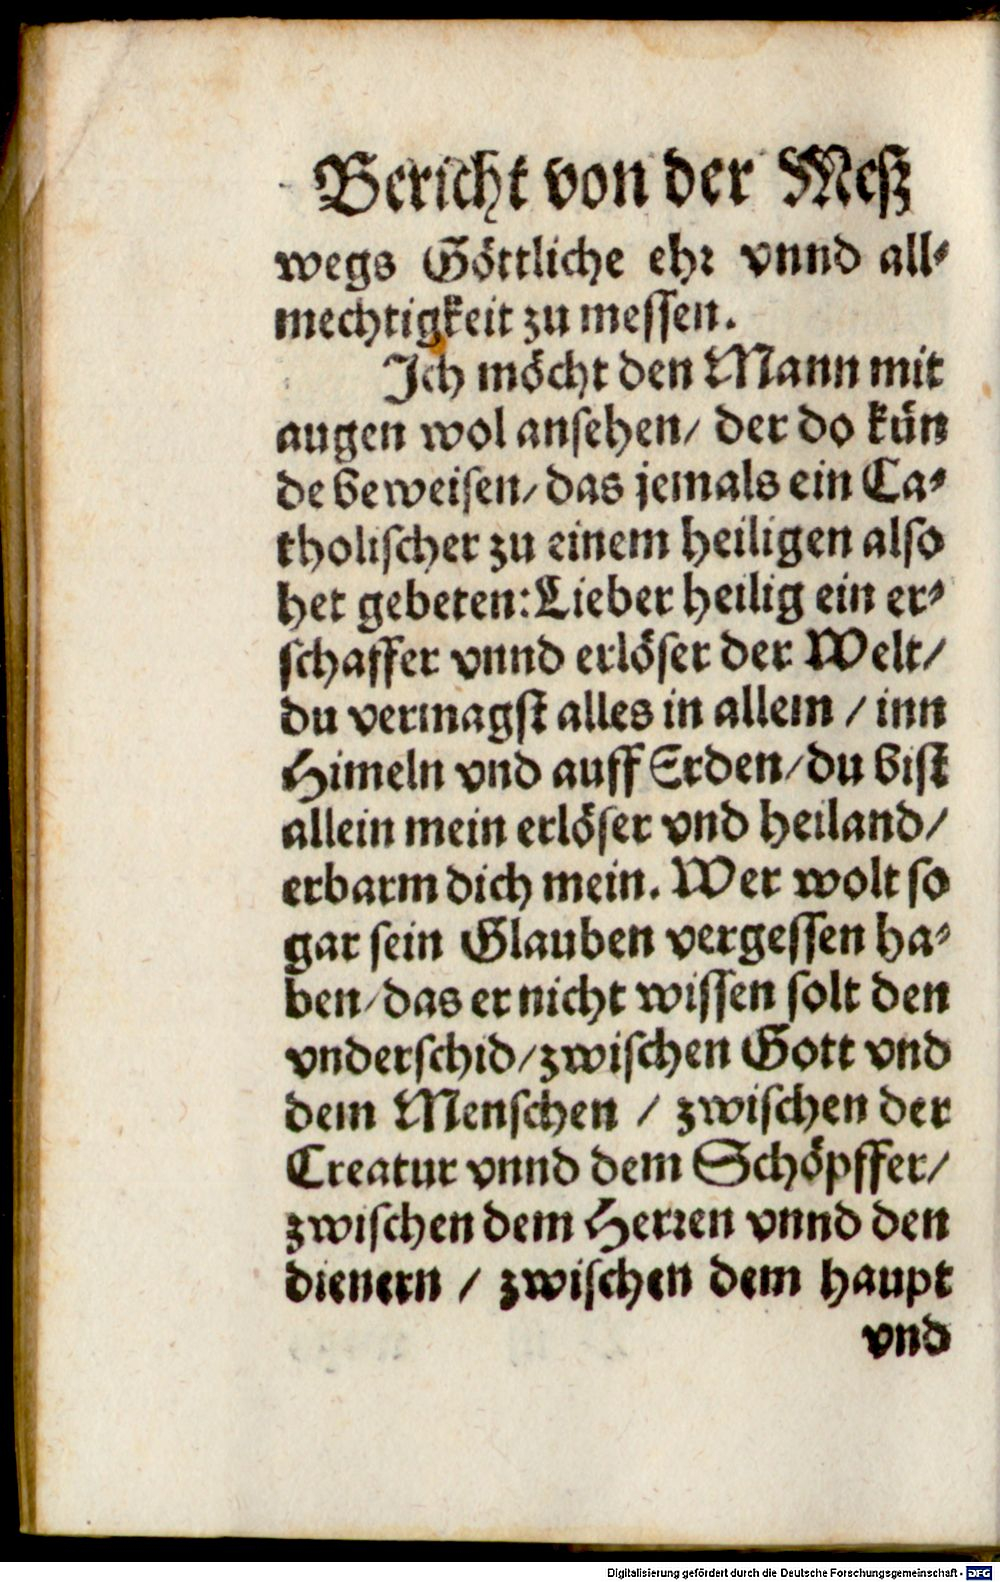 Bericht von der Meß
wegs Göttliche ehr vnnd all-
mechtigkeit zu messen.
Ich möcht den Mann mit
augen wol ansehen/ der do kün
de beweisen/ das jemals ein Ca-
tholischer zu einem heiligen also
het gebeten: Lieber heilig ein er-
schaffer vnnd erlöser der Welt/
du vermagst alles in allem / inn
Himeln vnd auff Erden/ du bist
allein mein erlöser vnd heiland/
erbarm dich mein. Wer wolt so
gar sein Glauben vergessen ha-
ben/ das er nicht wissen solt den
vnderschid/ zwischen Gott vnd
dem Menschen / zwischen der
Creatur vnnd dem Schöpffer/
zwischen dem Herren vnnd den
dienern / zwischen dem haupt
vnd
Digitalisierung gefördert durch die Deutsche Forschungsgemeinschaft - DFG